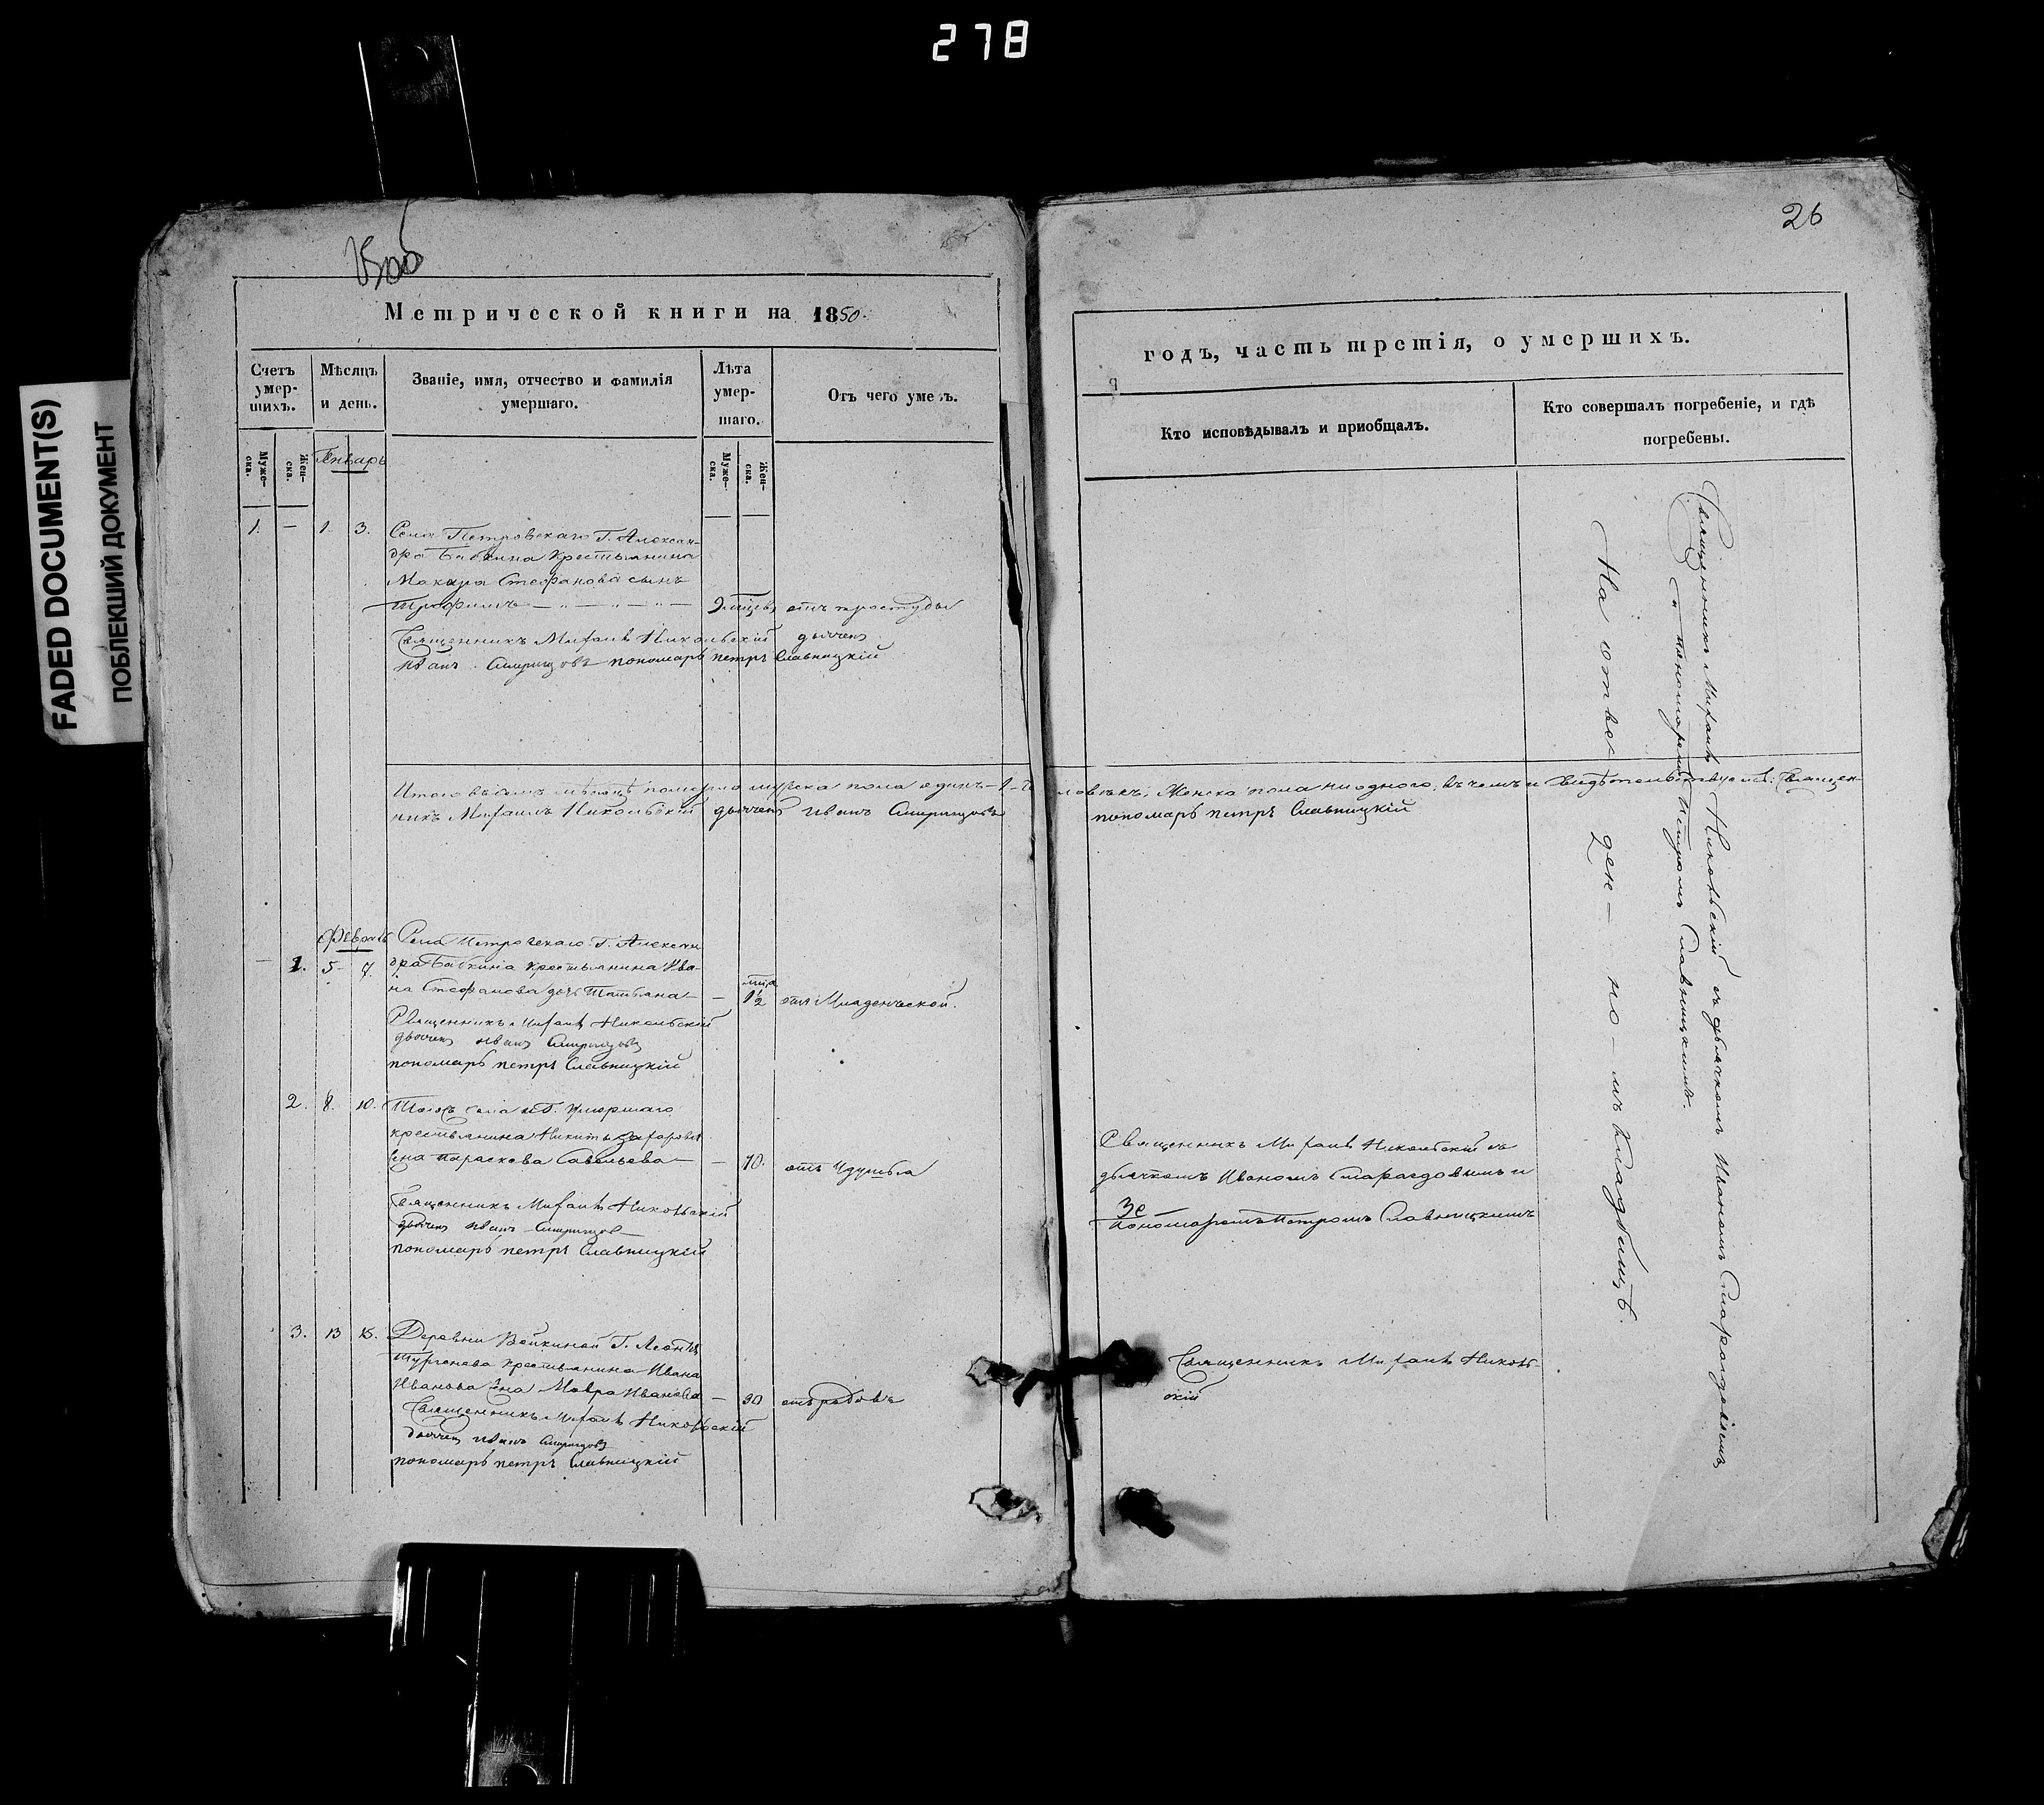 278
FADED DOCUMENT(S)
ПОБЛЕКШИЙ ДОКУМЕНТ
26
Метрической книги на 1850.
годъ, часть третія, о умершихъ.
Счетъ умер-шихъ.
Мѣсяцъ и день.
Званіе, имя, отчество и фамилія
умершаго.
Лѣта умер-шаго.
Отъ чего уме ъ.
Кто исповѣдывалъ и приобщалъ.
Кто совершалъ погребеніе, и гдѣ
погребены.
Муже-ска.
Жен-ска.
Муже-ска.
Жен-ска.
Январь
1. — 1. 3. Села Петровскаго Г. Алексан-
дра Бабкина крестьянина
Макара Стефанова сынъ
Трофимъ — 9 мцевъ отъ простуды
Священникъ Михаилъ Никольскій дьячекъ
Иванъ Смарагдовъ пономарь петръ Славницкій
Итого въ семъ мѣсяцѣ померло мужска пола одинъ — 1 — человѣкъ; Женска пола ни одного, въ чемъ и свидѣтельствуемъ: Священ-
никъ Михаилъ Никольскій дьячекъ Иванъ Смарагдовъ пономарь петръ Славницкій
Февраль
Села Петровскаго Г. Алексан
— 1. 5 7. дра Бабкина крестьянина Ива-
на Стефанова дочь Татьяна — — 1½ отъ Младенческой.
Священникъ Михаилъ Никольскій
дьячекъ Иванъ Смарагдовъ
пономарь петръ Славницкій
2. 8. 10. Тогожъ села и Г. Умершаго
крестьянина Никиты Захарова
жена Параскева Савельева — — 70. отъ Удушья
Священникъ Михаилъ Никольскій
дьячекъ Иванъ Смарагдовъ
пономарь петръ Славницкій
Священникъ Михаилъ Никольскій съ
дьячкомъ Иваномъ Смарагдовымъ и
Пономаремъ Петромъ Славницкимъ
3. 13 15. Деревни Войкиной Г.
Тургенева крестьянина Ивана
Иванова жена Мавра Иванова — 30 отъ родовъ
Священникъ Михаилъ Никольскій
дьячекъ Иванъ Смарагдовъ
пономарь петръ Славницкій
Священникъ Михаилъ Николь-
скій
Священникъ Михаилъ Никольскій съ дьячкомъ Иваномъ Смарагдовымъ
и пономаремъ Петромъ Славницкимъ.
На отве — ден — но — мъ кладбищѣ.